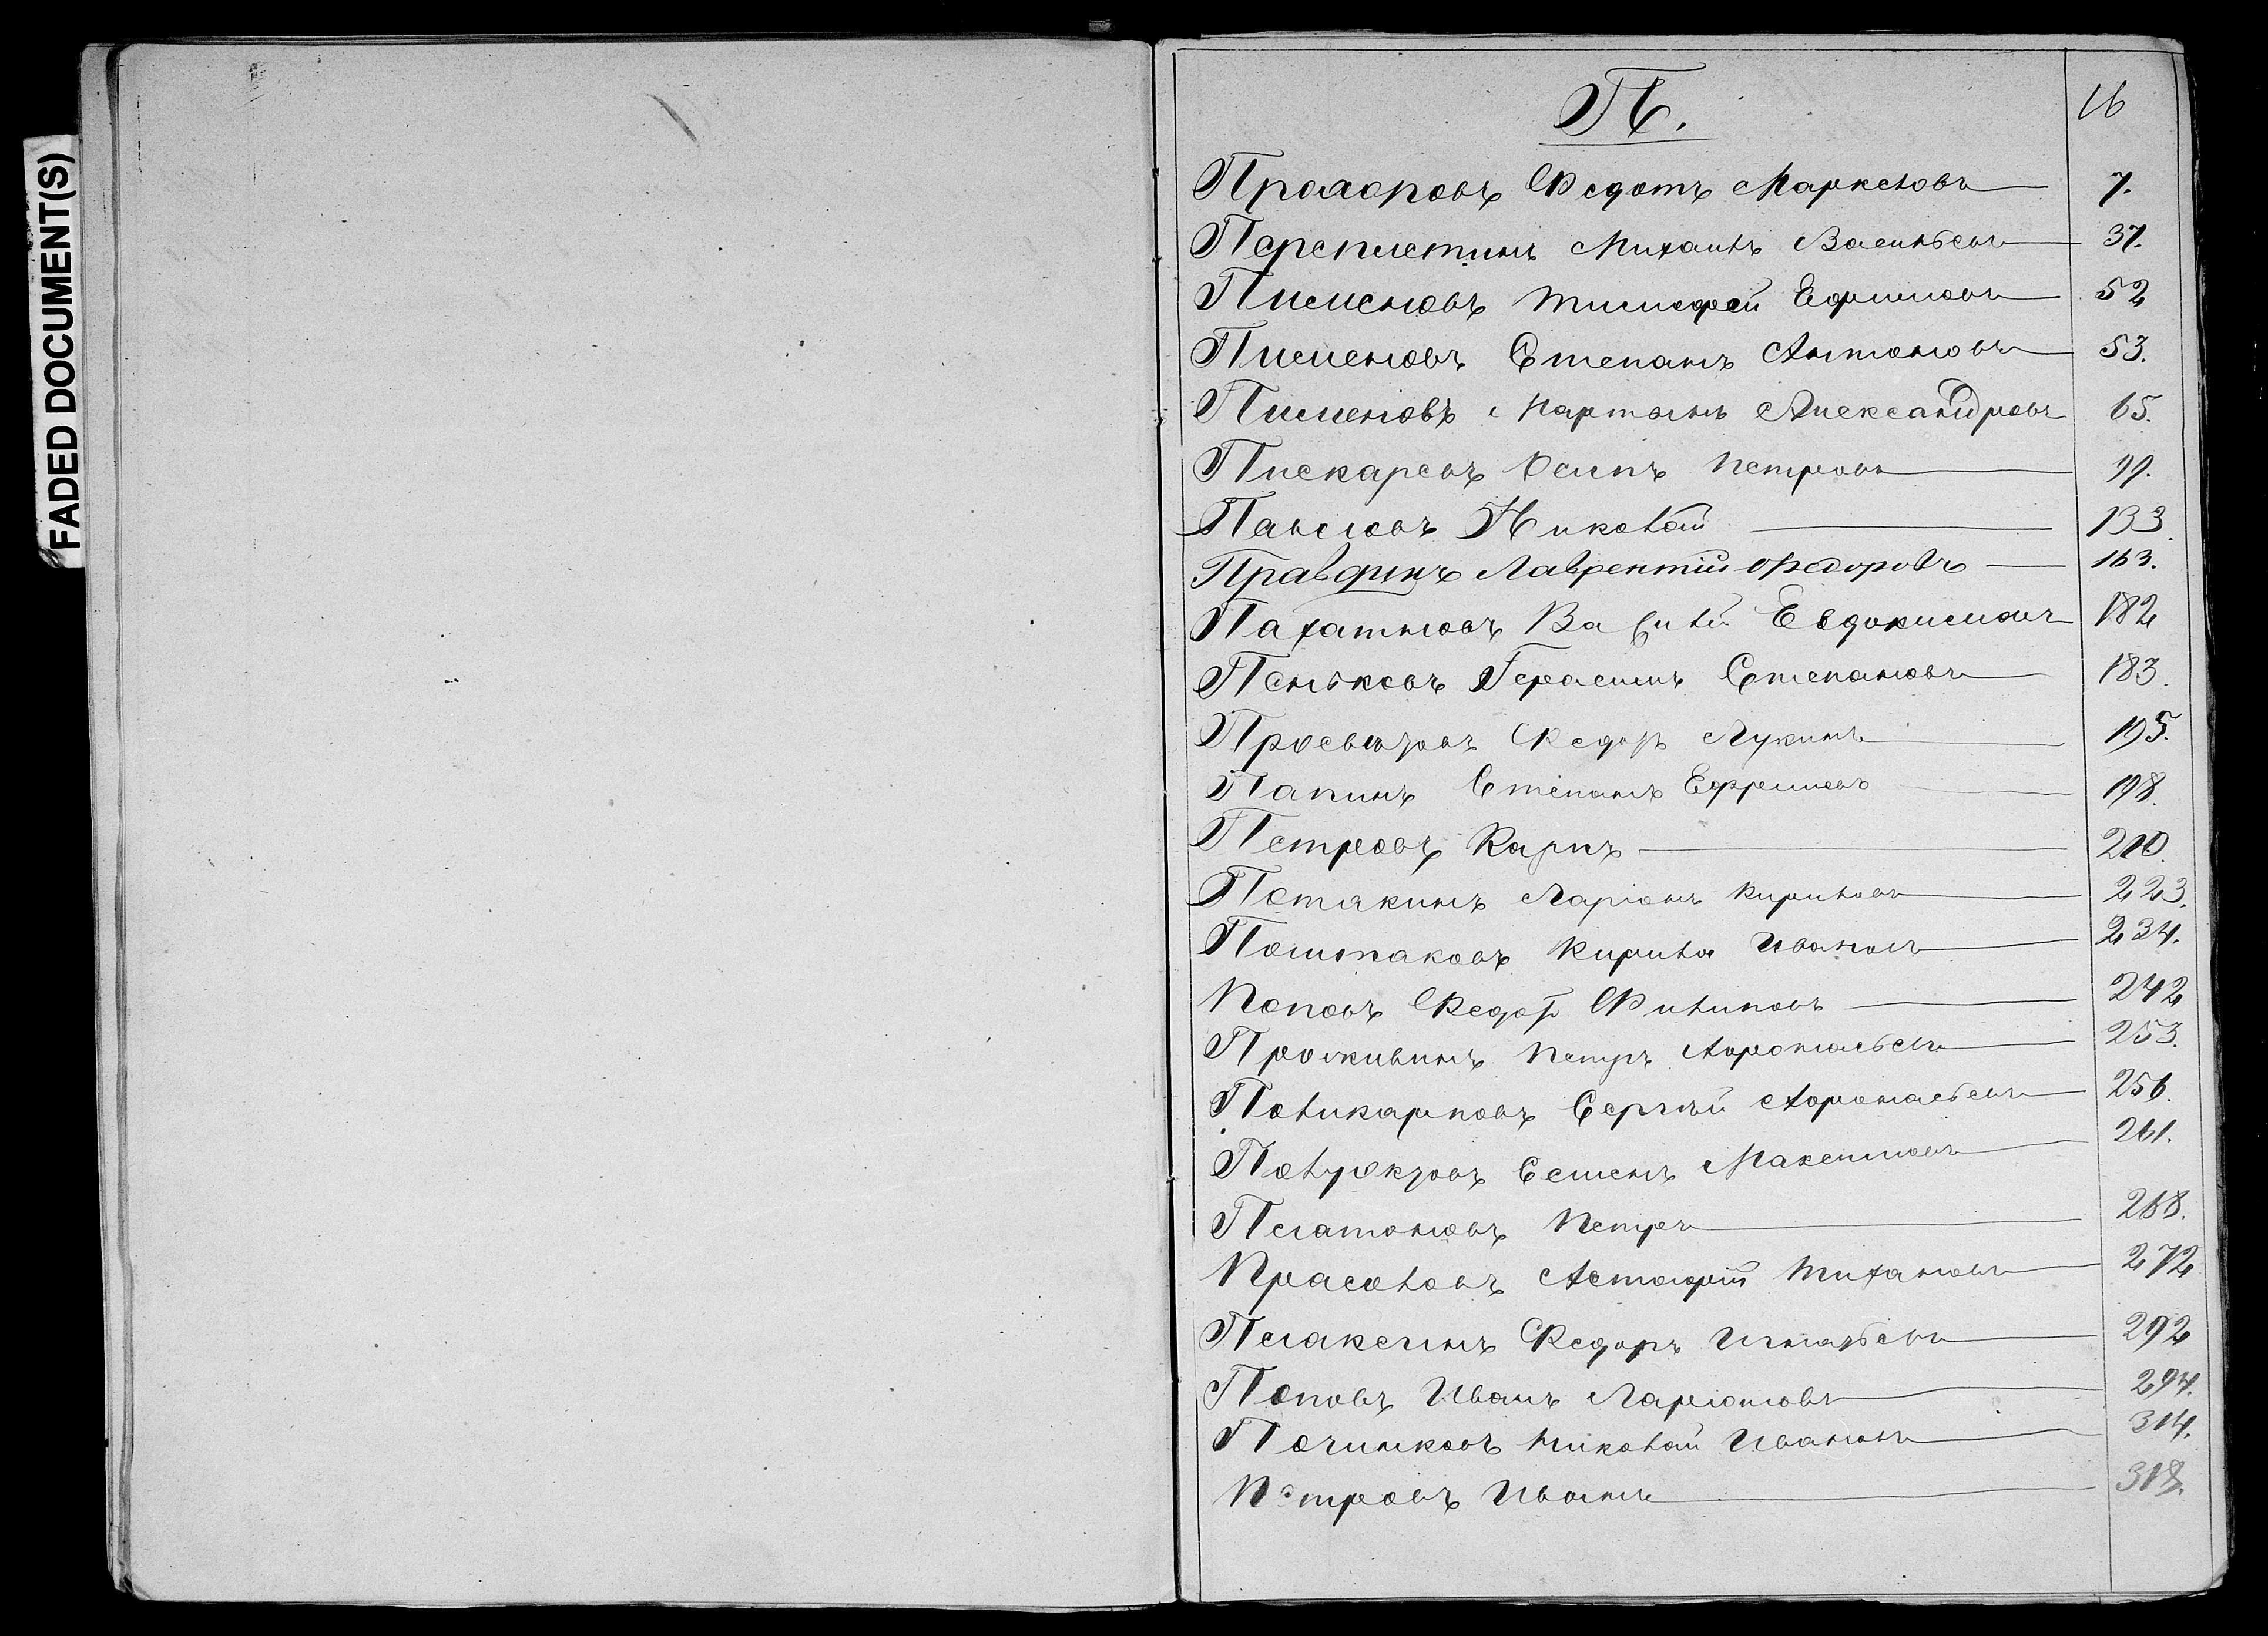 FADED DOCUMENT(S)
16
П.
Прохоровъ Федотъ Маркеловъ 7.
Переплетинъ Михаилъ Васильевъ 37.
Пименовъ Тимофей Ефимовъ 52
Пименовъ Степанъ Антоновъ 53.
Пименовъ Мартынъ Александровъ 65.
Пискаревъ Осипъ Петровъ 99.
Павловъ Николай 133.
Правдинъ Лаврентій Федоровъ 163.
Пахатновъ Василій Евдокимовъ 182
Пеньковъ Герасимъ Степановъ 183.
Федоръ Лукинъ 195.
Папинъ Степанъ Ефремовъ 198.
Петровъ Карпъ 210.
Потякинъ Ларіонъ Кириловъ 223.
Полтаковъ Кирила Ивановъ 234.
Поповъ Федоръ Филиповъ 242
Проживинъ Петръ Афонасьевъ 253.
Поликарповъ Сергѣй Афонасьевъ 256.
Семенъ Максимовъ 261.
Платоновъ Петръ 268.
Прасоловъ Астафій Тихановъ 272
Плаксинъ Федоръ Игнатьевъ 292
Поповъ Иванъ Ларіоновъ 294.
Починковъ Николай Ивановъ 314.
Петровъ Иванъ 318.